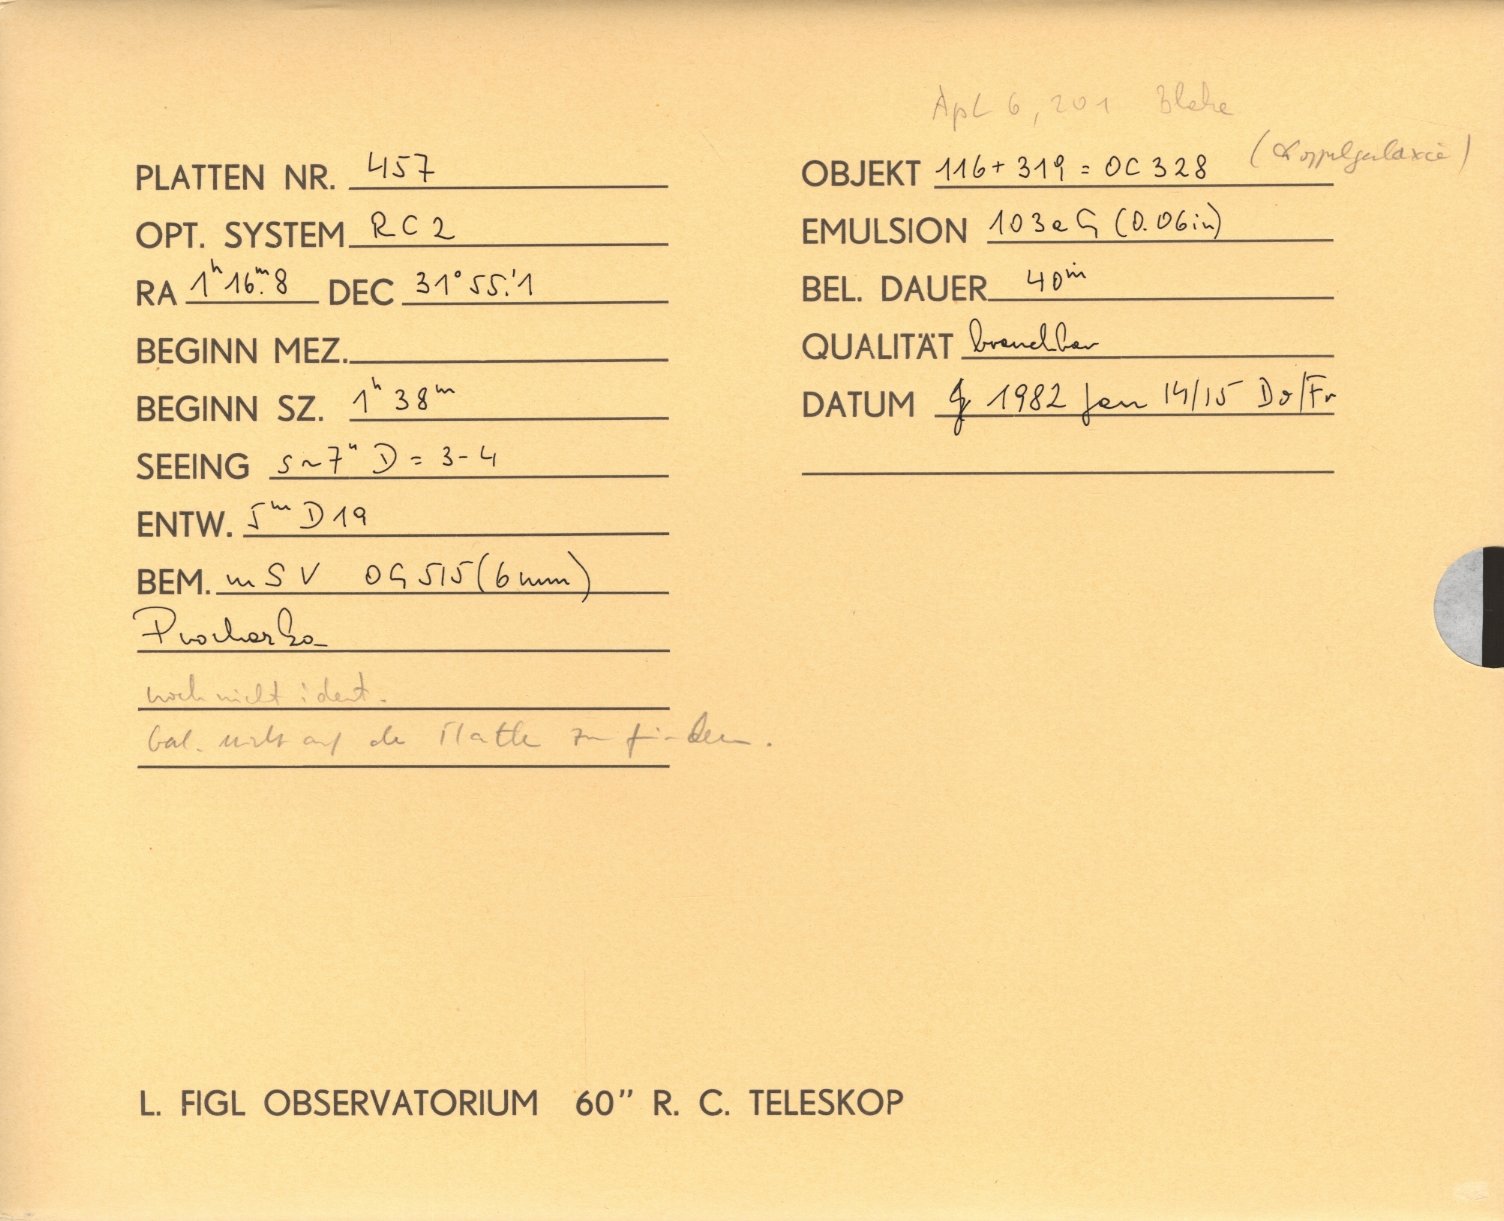 ApL 6, 201 Blake
PLATTEN NR. 457
OPT. SYSTEM RC 2
RA 1ʰ16ᵐ.8 DEC 31°55.'1
BEGINN MEZ.
BEGINN SZ. 1ʰ 38ᵐ
SEEING s~7" D = 3-4
ENTW. 5ᵐ D19
BEM. mSV OG 515 (6mm)
Prochazka
noch nicht ident.
Gal. nicht auf der Platte zu finden.
OBJEKT 116+319 = OC 328 (Doppelgalaxie)
EMULSION 103aG (0.06in)
BEL. DAUER 40ᵐ
QUALITÄT brauchbar
DATUM 1982 Jan 14/15 Do/Fr
L. FIGL OBSERVATORIUM 60" R. C. TELESKOP